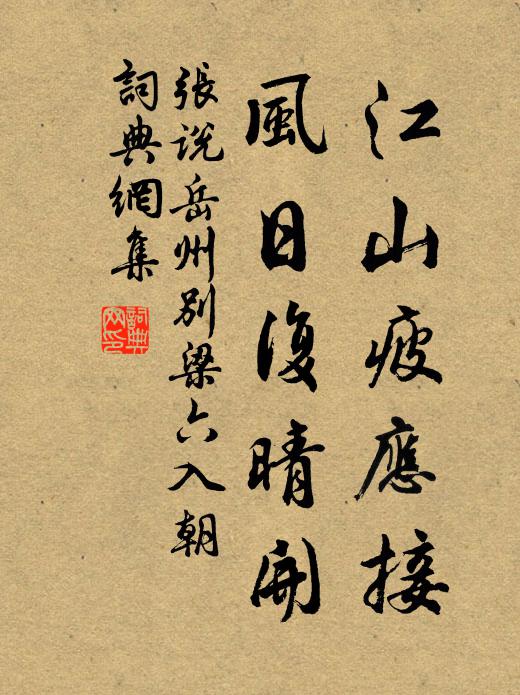 江山疲應接
風日復晴開
張說岳州別梁六入朝
詞典網集
詞典网印